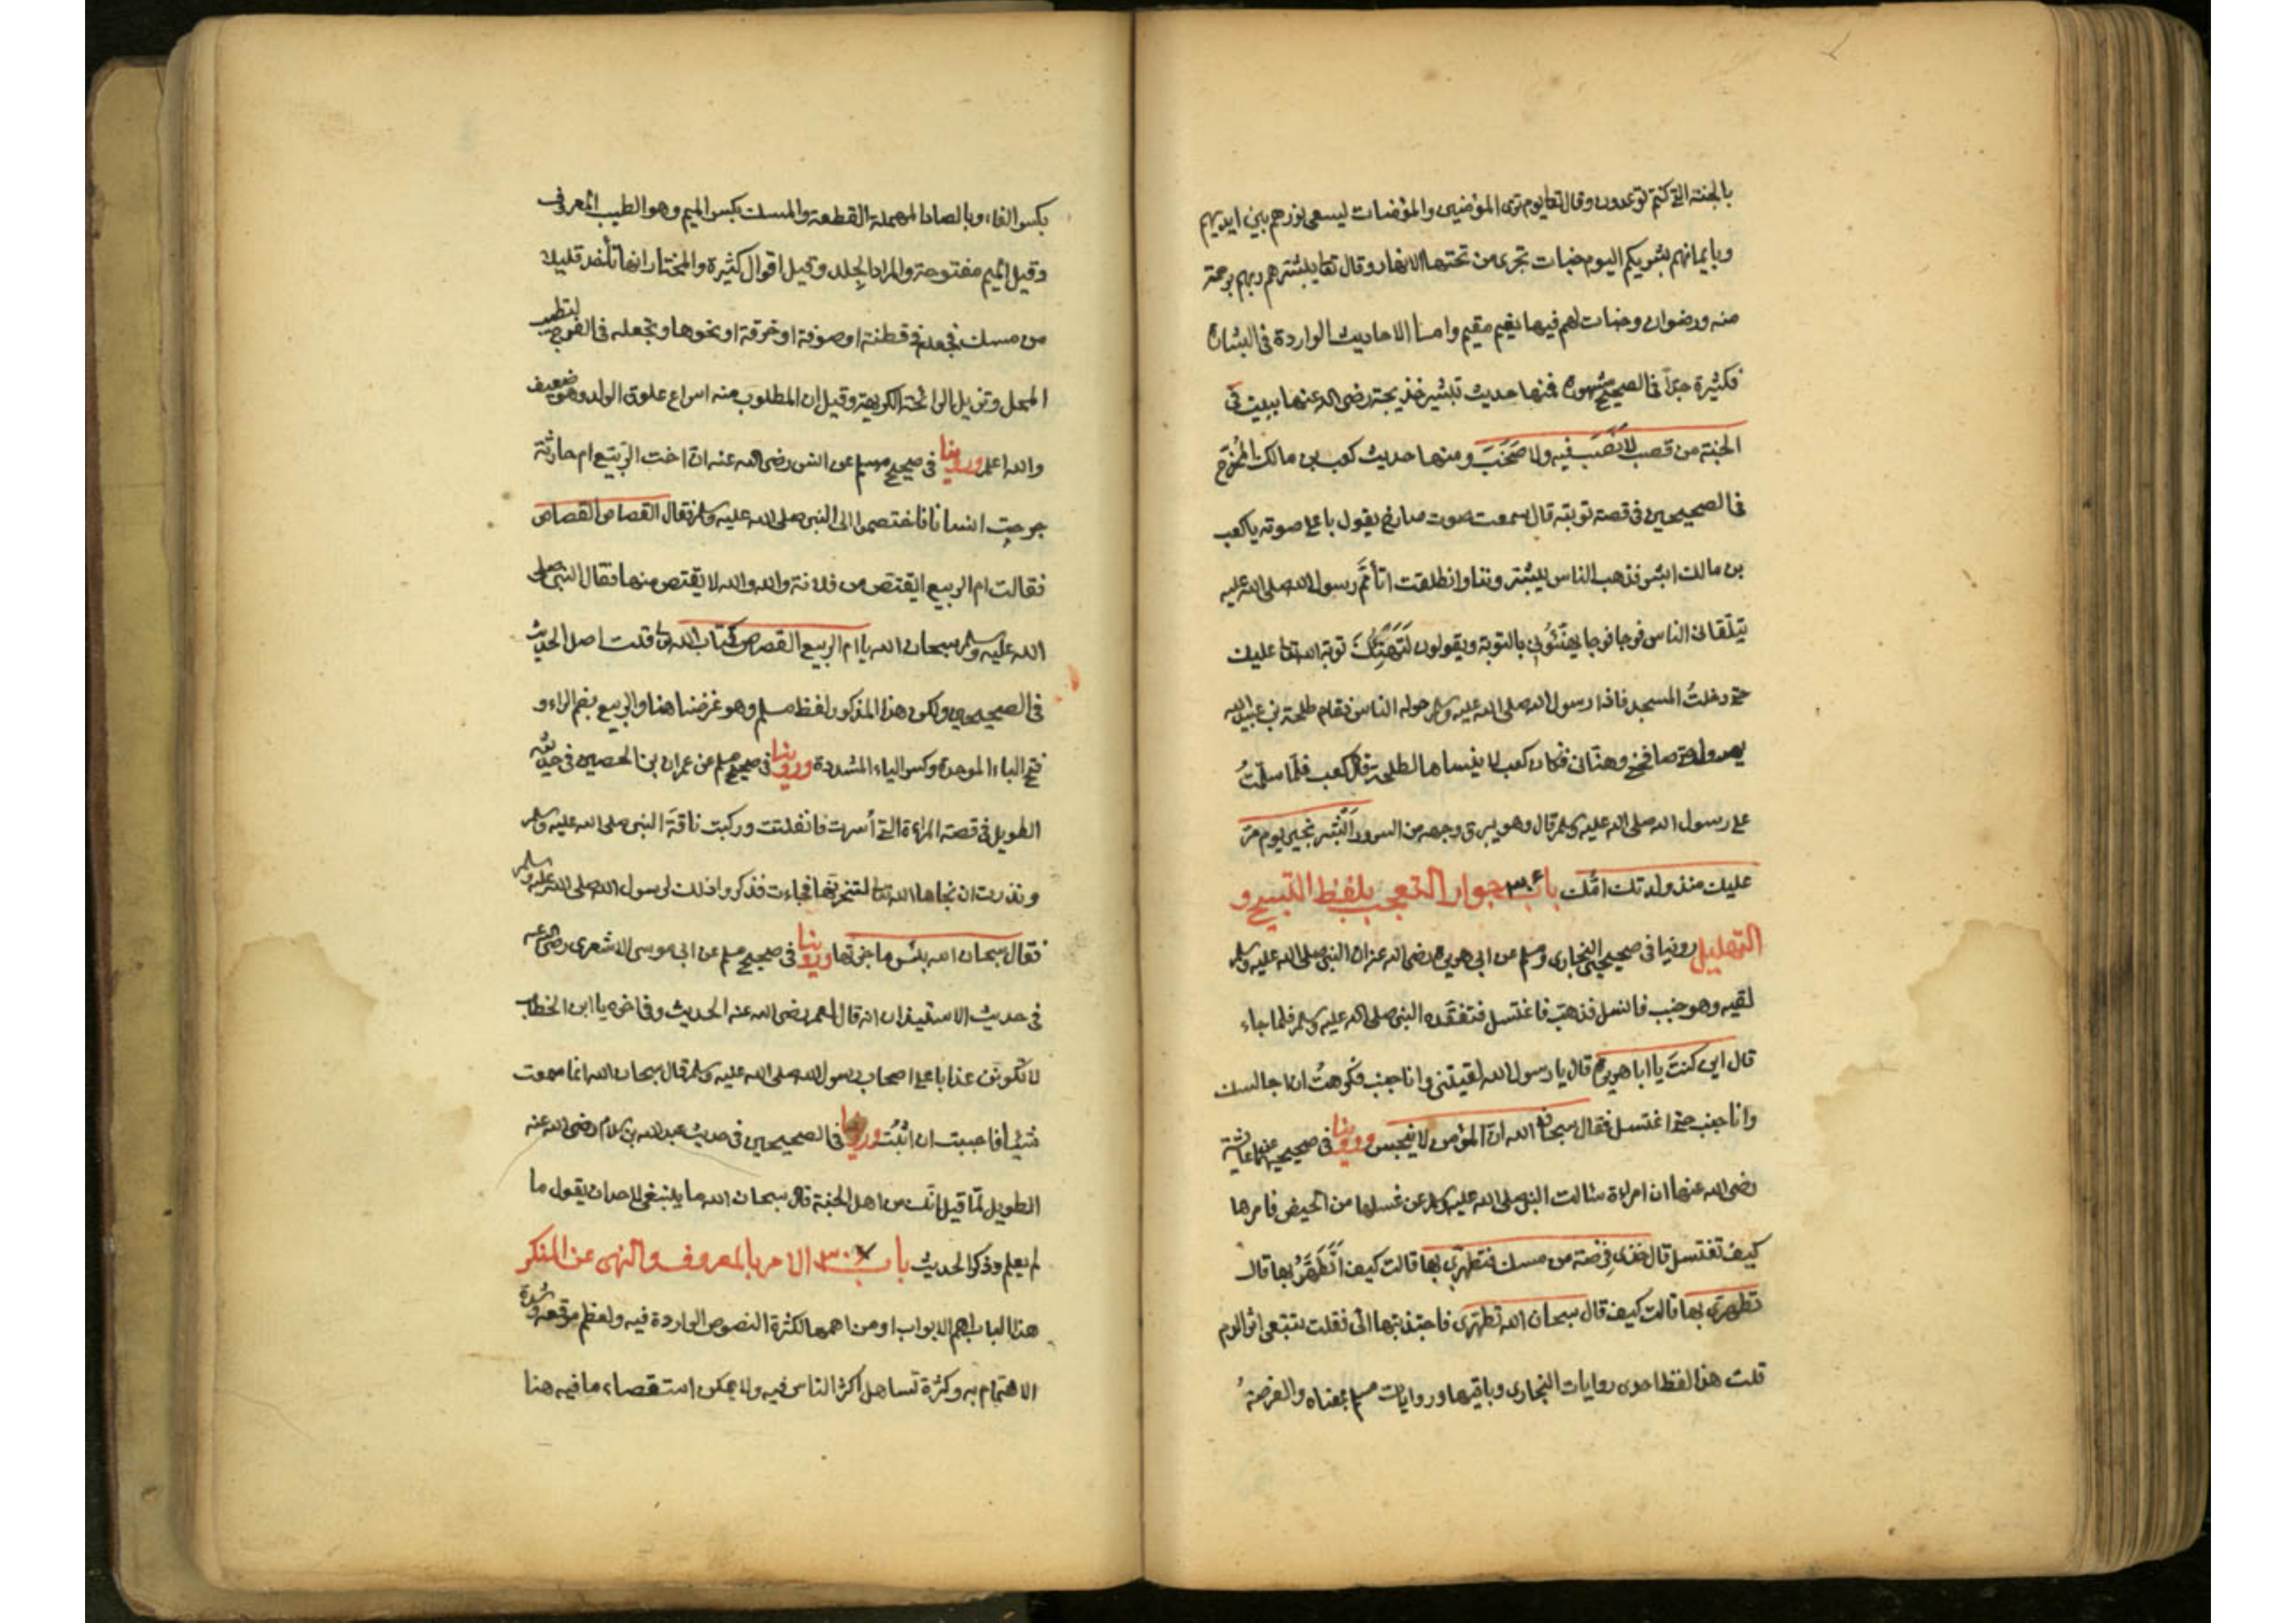 بالجنة التي كنتم توعدون وقال تعا يوم ترى المؤمنين والمؤمنات يسعى نورهم بين ايديهم
وبايمانهم بشريكم اليوم جنات تجرى من تحتها الانهار وقال تعا يبشرهم ربهم برحمة
منه ورضوان وجنات لهم فيها نعيم مقيم واما الاحاديث الواردة في البشارة
فكثيرة جدّاً في الصحيح مشهورة فمنها حديث تبشير خديجة رضى الله عنها ببيت في
الجنة من قصب لا نَصَبَ فيه ولا صَخَبَ ومنها حديث كعب بن مالك المُخرّج
في الصحيحين في قصة توبته قال سمعت صوت صارخ يقول باعلى صوته يا كعب
بن مالك ابشر فذهب الناس يبشروننا وانطلقت اتأمّم رسول الله صلى الله عليه
يتلقانى الناس فوجا فوجا يهنّئوني بالتوبة ويقولون لتهنك توبة الله تعا عليك
حتى دخلتُ المسجد فاذا رسول الله صلى الله عليه وسلم حوله الناس فقام طلحة بن عبيد الله
يهرول حتى صافحني وهنّانى فكان كعب لا ينساها لطلحة قال كعب فلمّا سلّمتُ
على رسول الله صلى الله عليه وسلم قال وهو يبرق وجهه من السرور اَبْشِر بخير يوم مرّ
عليك منذ ولدتك امّك باب ٣٠٦ جواز التعجب بلفظ التسبيح و
التهليل روينا في صحيحي البخارى ومسلم عن ابى هريرة رضى الله عنه ان النبي صلى الله عليه وسلم
لقيه وهو جنب فانسل فذهب فاغتسل فتفقده النبي صلى الله عليه وسلم فلما جاء
قال اين كنتَ يا ابا هريرة قال يا رسول الله لقيتني وانا جنب فكرهتُ ان اجالسك
وانا جنب حتى اغتسل فقال سبحان الله ان المؤمن لا ينجس وروينا في صحيحيهما عن عائشة
رضى الله عنها ان امراة سالت النبي صلى الله عليه وسلم عن غسلها من الحيض فامرها
كيف تغتسل قال خذى فِرْصة من مسك فتطهرّى بها قالت كيف اَتَطَهَّرُ بها قال
تطهرّى بها قالت كيف قال سبحان الله تطهرّى فاجتذبتها الىّ فقلت تتبعى اثر الدم
قلت هذا لفظ احدى روايات البخارى وباقيها وروايات مسلم بمعناه والفرصةُ
بكسر الفاء وبالصاد المهملة القطعة والمسك بكسر الميم وهو الطيب المعروف
وقيل الميم مفتوحة والمراد الجلد وقيل اقوال كثيرة والمختار انها تأخذ قليلا
من مسك فتجعله في قطنة او صوفة او خرقة او نحوها وتجعله في الفرج لتطيب
المحل وتزيل الرائحة الكريهة وقيل ان المطلوب منه اسراع علوق الولد وهو ضعيف
والله اعلم وروينا في صحيح مسلم عن انس رضى الله عنه انّ اخت الرّبيع ام حارثة
جرحت انسانا فاختصموا الى النبي صلى الله عليه وسلم فقال القصاص القصاص
فقالت ام الربيع ايقتص من فلانة والله والله لا يقتص منها فقال النبي صلى
الله عليه وسلم سبحان الله يا ام الربيع القصاص كتاب الله تعا قلت اصل الحديث
في الصحيحين ولكن هذا المذكور لفظ مسلم وهو غرضنا هنا والربيع بضم الراء و
فتح الباء الموحدة وكسر الياء المشددة وروينا في صحيح مسلم عن عمران بن الحصين في حديثه
الطويل في قصة المراءة التي أسرت فانفلتت وركبت ناقة النبي صلى الله عليه وسلم
ونذرت ان نجاها الله تعا لتنحرنّها فجاءت فذكروا ذلك لرسول الله صلى الله عليه وسلم
فقال سبحان الله بئس ما جزتها وروينا في صحيح مسلم عن ابى موسى الاشعرى رضى الله عنه
في حديث الاستيذان انه قال لعمر رضى الله عنه الحديث وفي اخره يا ابن الخطاب
لا تكونن عذابا على اصحاب رسول الله صلى الله عليه وسلم قال سبحان الله انما سمعت
شيئا فاحببت ان اتثبّت وروينا في الصحيحين في حديث عبد الله بن سلام رضى الله عنه
الطويل لمّا قيل انّك من اهل الجنة قال سبحان الله ما ينبغى لاحد ان يقول ما
لم يعلم وذكر الحديث باب ٣٠٧ الامر بالمعروف والنهى عن المنكر
هذا الباب اهم الابواب او من اهمها لكثرة النصوص الواردة فيه ولعظم موقعه وشدة
الاهتمام به وكثرة تساهل اكثر الناس فيه ولا يمكن استقصاء ما فيه هنا